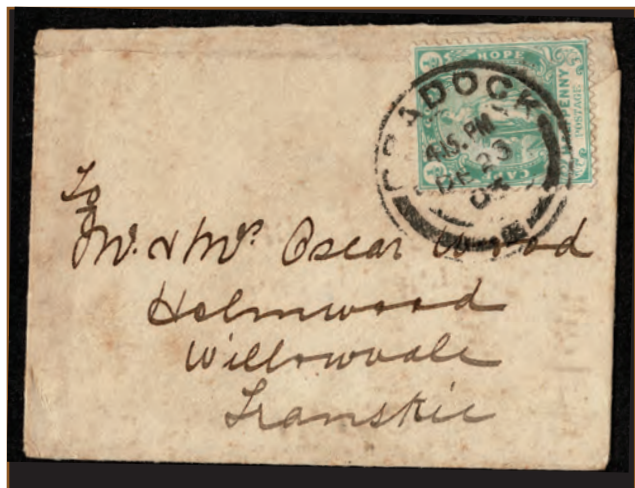 HOPE
PENNY
POSTAGE
CRADOCK
4.15. PM
DE 23
To
Mr. & Mrs. Oscar Wood
Holmwood
Willowvale
Transkie